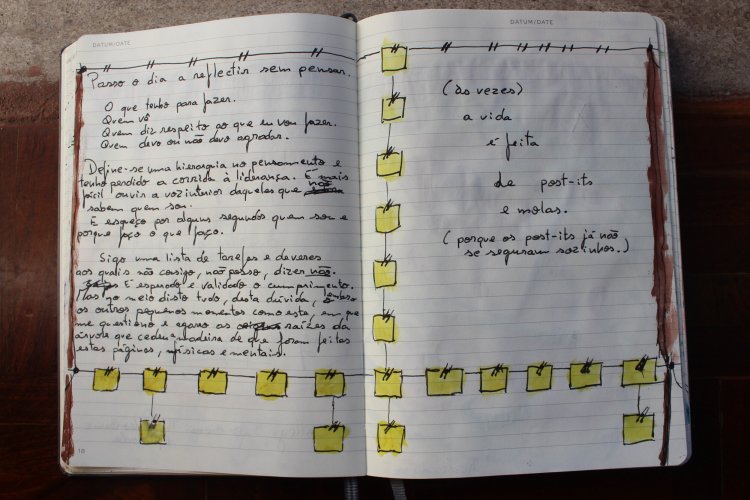 DATUM/DATE
Passo o dia a reflectir sem pensar.
O que tenho para fazer.
Quem vê
Quem diz respeito ao que eu vou fazer.
Quem devo ou não devo agradar.
Define-se uma hierarquia no pensamento e
tenho perdido a corrida à liderança. É mais
fácil ouvir a voz interior daqueles que não
sabem quem sou.
E esqueço por alguns segundos quem sou e
porque faço o que faço.
Sigo uma lista de tarefas e deveres
aos quais não consigo, não posso, dizer não.
É esperado e validado o cumprimento.
Mas no meio disto tudo, desta dúvida,
os outros pequenos momentos como este, em que
me questiono e agarro as raízes da
árvore que cedeu a madeira de que foram feitas
estas páginas, físicas e mentais.
10
DATUM/DATE
(às vezes)
a vida
é feita
de post-its
e molas.
(porque os post-its já não
se seguram sozinhos.)